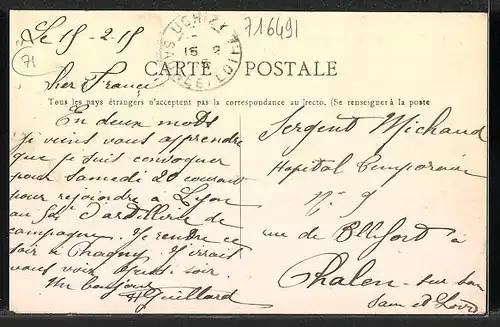 Le 15-2-15
716491
71
UCHIZY
SAÔNE ET LOIRE
15 2
CARTE POSTALE
Tous les pays étrangers n'acceptent pas la correspondance au recto. (Se renseigner à la poste
Cher Francé
En deux mots
je viens vous apprendre
que je suis convoquer
pour Samedi 20 courant
pour rejoindre à Lyon
au d'artillerie de
campagne. Je rendre ce
soir à Chagny. J'irait
vous voir Jeudi soir.
Un bonjour
Guillard
Sergent Michaud
Hopital Temporaire
N° 9
rue de Bellfort à
Chalon-sur-Saon
Saon et Loire